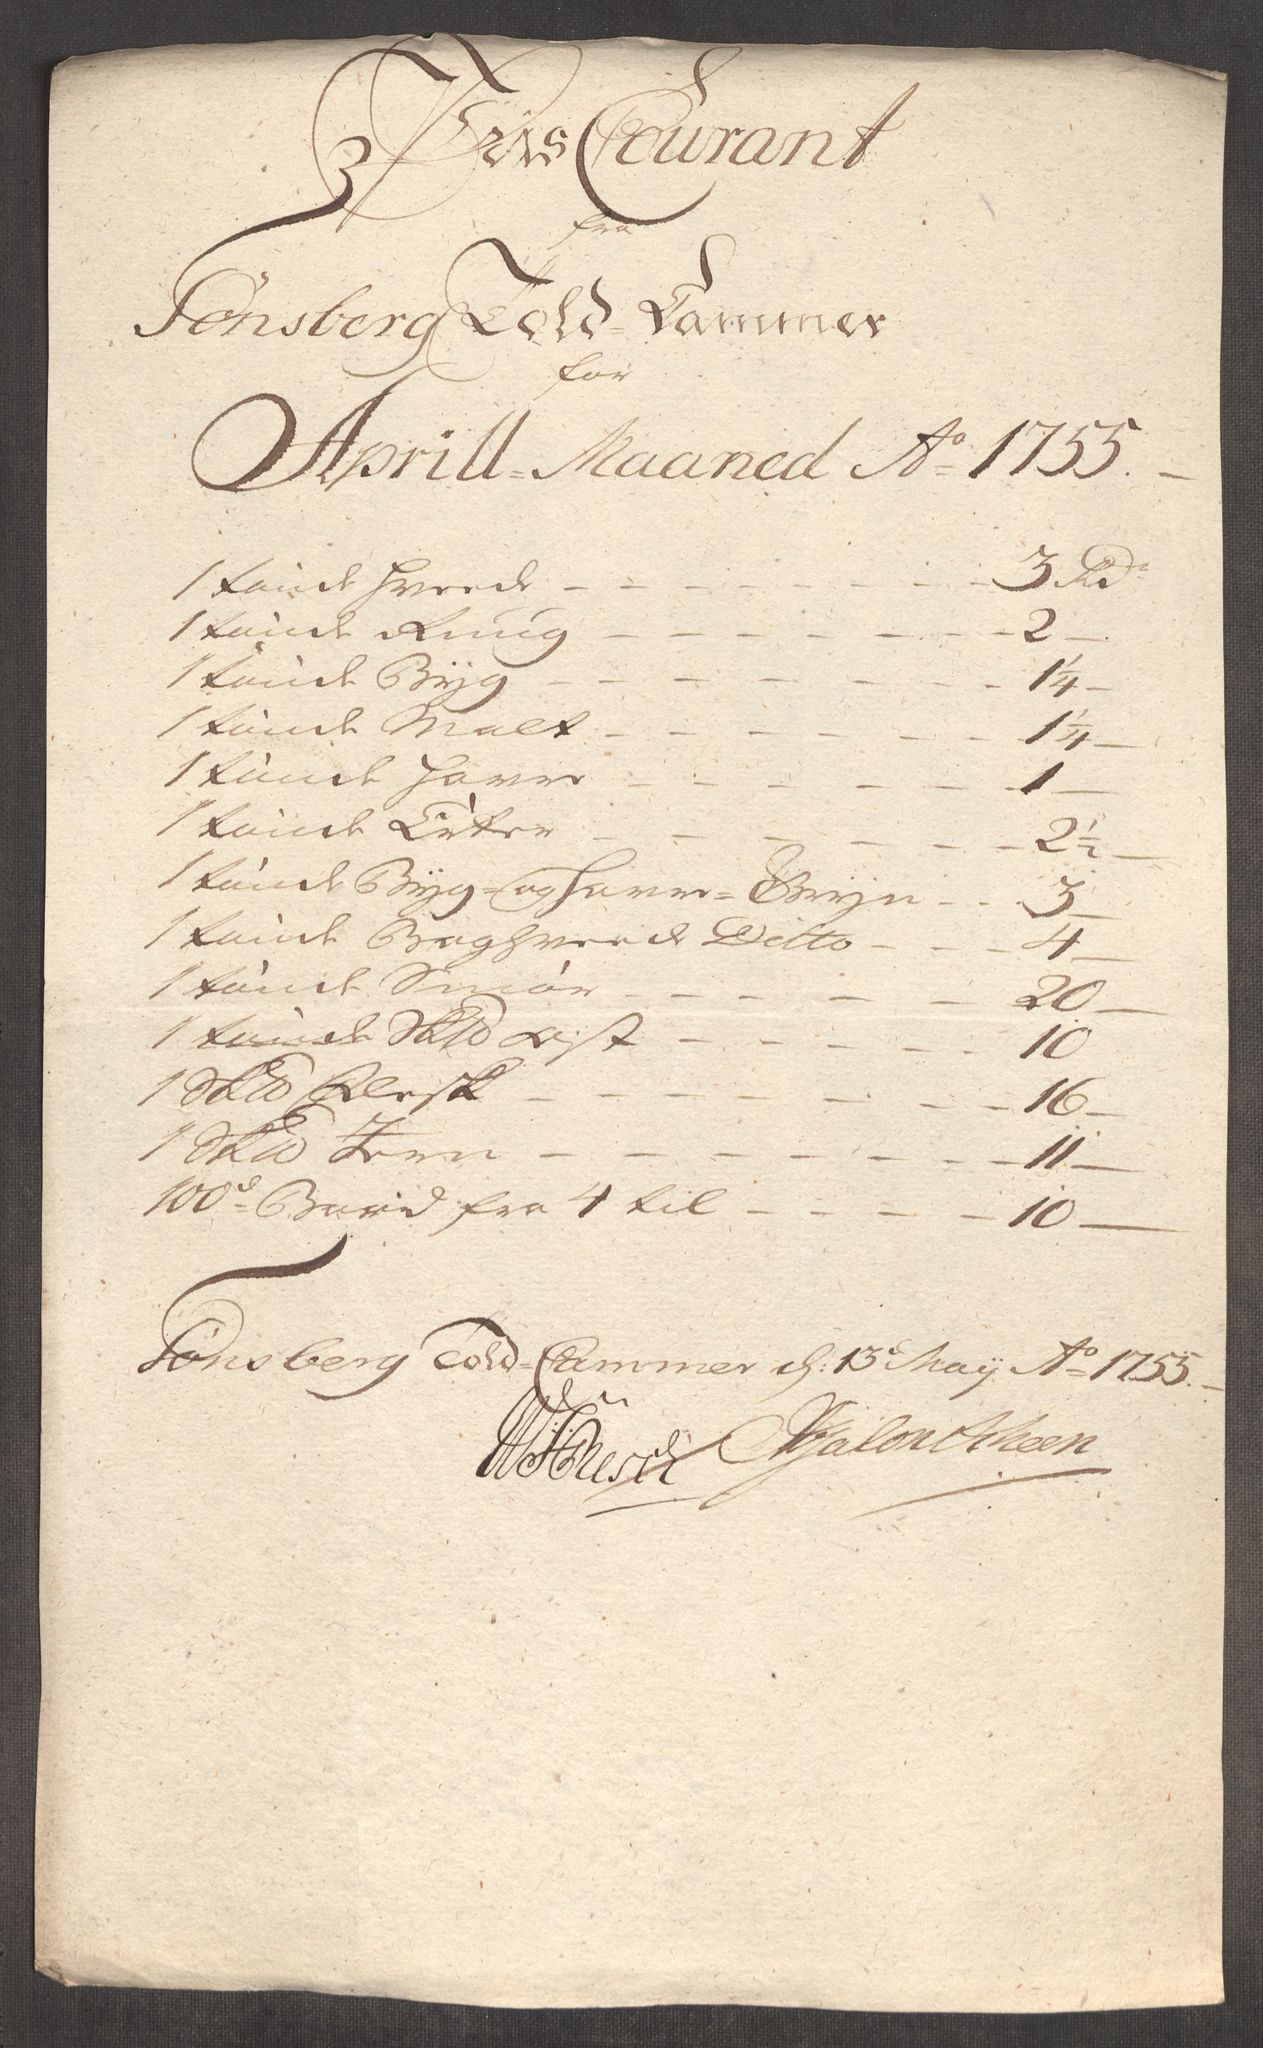 Priis Courant
fra
Tönsberg Told-Cammer
for
Aprill-Maaned Ao 1755.
1 tönde Hveede 3 Rd
1 tönde Ruug 2
1 tönde Byg 1¼
1 tönde Malt 1¼
1 tönde Havre 1
1 tönde Erter 2½
1 tönde Byg- og Havre-Gryn 3
1 tönde Boghveede Ditto 4
1 tönde Smiör 20
1 tönde Sk℔ Ost 10
1 Sk℔ Flesk 16
1 Sk℔ Jern 11
100d Bord fra 4 til 10
Tönsberg Told-Cammer d: 13de May Ao 1755.